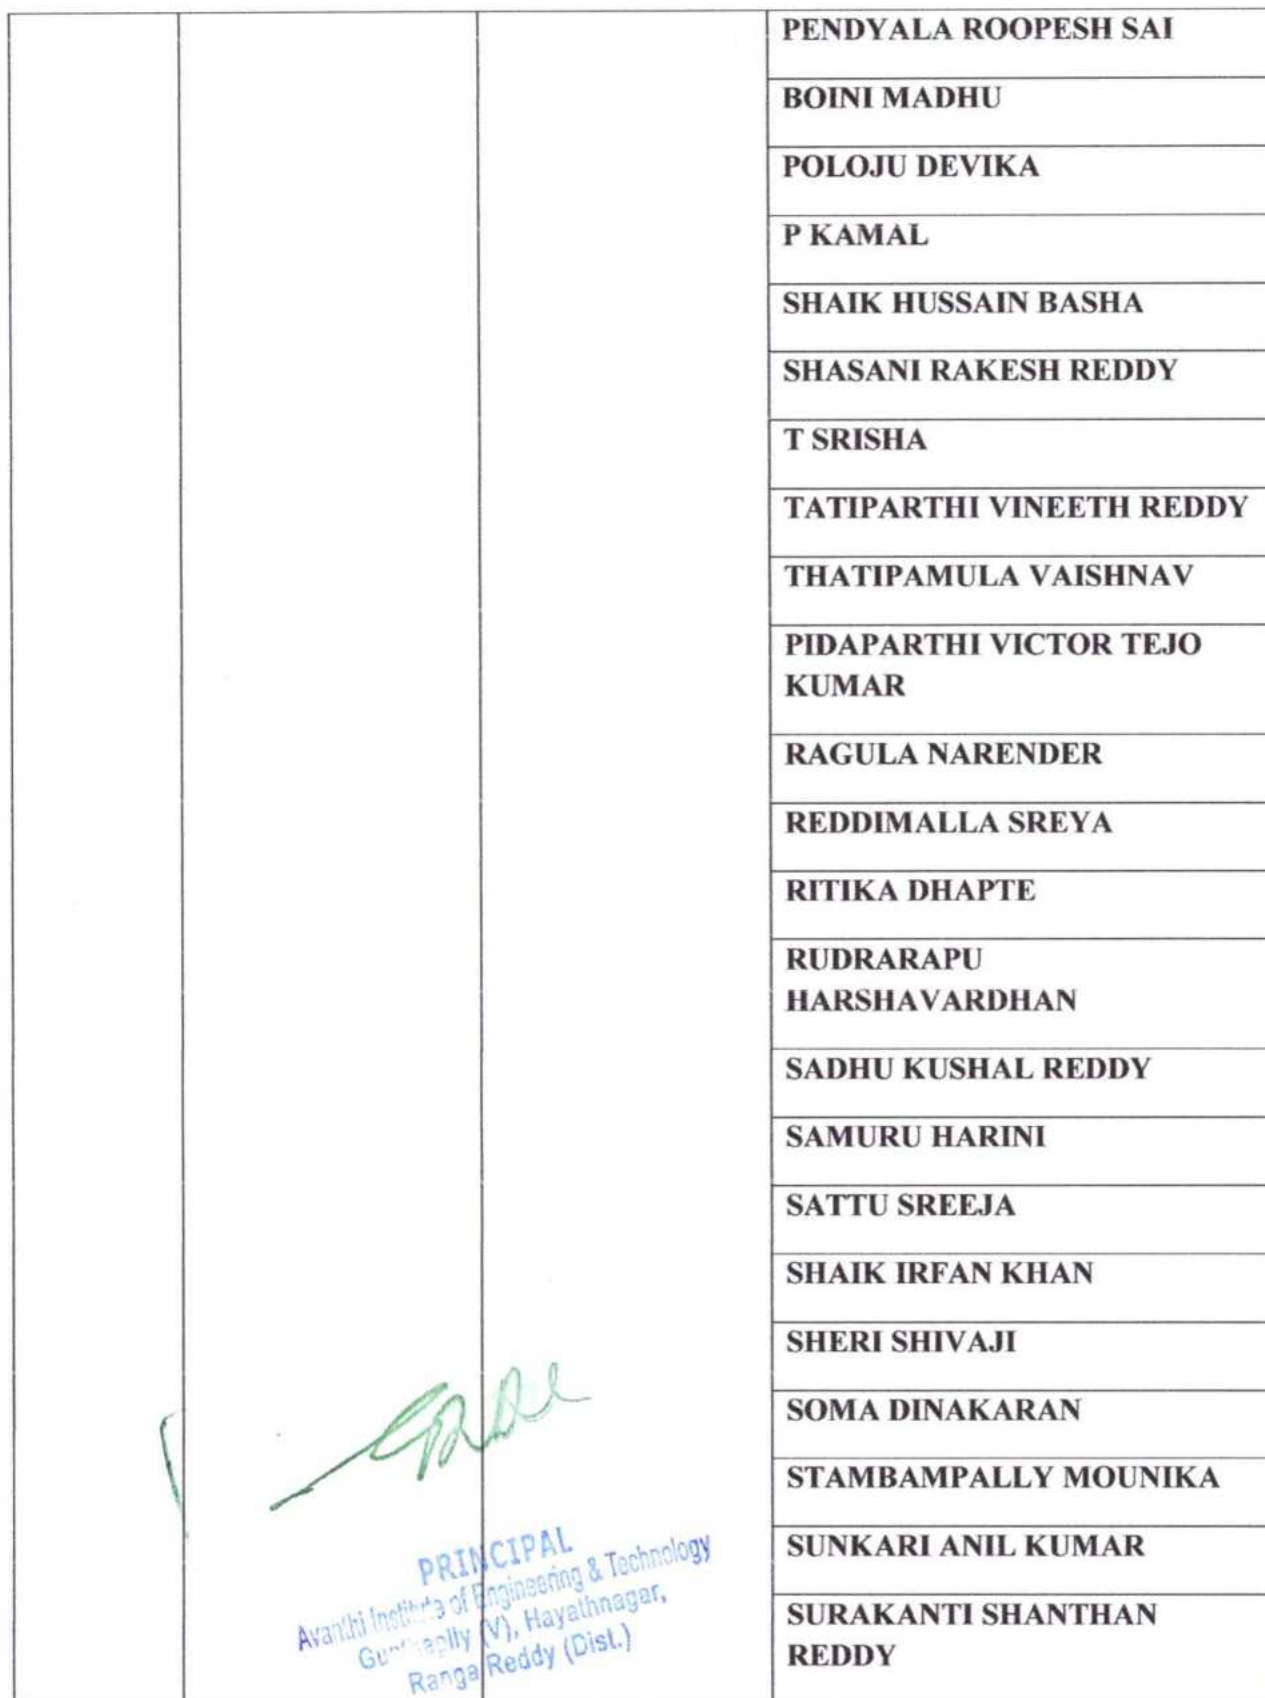 PENDYALA ROOPESH SAI
BOINI MADHU
POLOJU DEVIKA
P KAMAL
SHAIK HUSSAIN BASHA
SHASANI RAKESH REDDY
T SRISHA
TATIPARTHI VINEETH REDDY
THATIPAMULA VAISHNAV
PIDAPARTHI VICTOR TEJO
KUMAR
RAGULA NARENDER
REDDIMALLA SREYA
RITIKA DHAPTE
RUDRARAPU
HARSHAVARDHAN
SADHU KUSHAL REDDY
SAMURU HARINI
SATTU SREEJA
SHAIK IRFAN KHAN
SHERI SHIVAJI
SOMA DINAKARAN
STAMBAMPALLY MOUNIKA
SUNKARI ANIL KUMAR
SURAKANTI SHANTHAN
REDDY
PRINCIPAL
Avanthi Institute of Engineering & Technology
(V), Hayathnagar,
Ranga Reddy (Dist.)